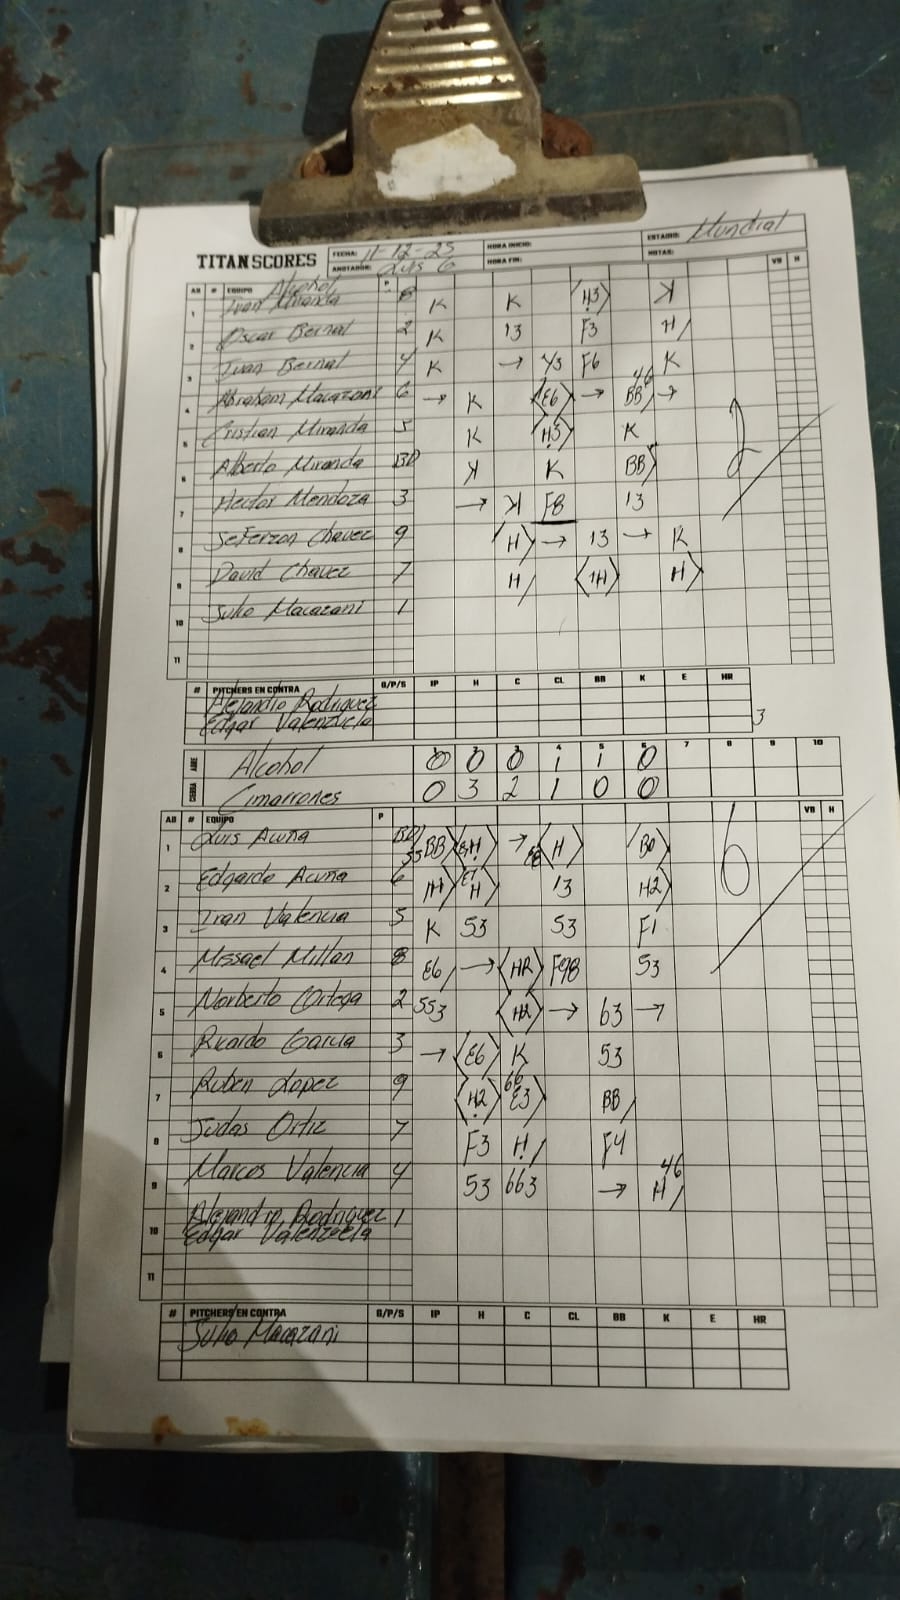 TITAN SCORES
FECHA: 11-12-25 HORA INICIO: ESTADIO: Mundial
ANOTADOR: Luis G HORA FIN: NOTAS:
AB # EQUIPO Alcohol P VB H
1 Ivan Miranda 8 K K H3 K
2 Oscar Bernal 2 K 13 F3 H
3 Ivan Bernal 4 K → 43 F6 K
4 Abraham Macazani 6 → K E6 → 46 BB →
5 Cristian Miranda 5 K H3 K
6 Alberto Miranda BD K K BB
7 Hector Mendoza 3 → K F8 13
8 Jeferzon Chavez 9 H → 13 → K
9 David Chavez 7 H 1H H
10 Julio Macazani 1
11
2
# PITCHERS EN CONTRA G/P/S IP H C CL BB K E HR
Alejandro Rodriguez
Edgar Valenzuela 3
1 2 3 4 5 6 7 8 9 10
ABRE Alcohol 0 0 0 1 1 0
CIERRA Cimarrones 0 3 2 1 0 0
AB # EQUIPO P VB H
1 Luis Acuña BD BB H → H
2 Edgardo Acuña 6 H H 13 H2
3 Ivan Valencia 5 K 53 53 F1
4 Missael Millan 8 E6 → HR F98 53
5 Norberto Ortega 2 553 H2 → 63 →
6 Ricardo Garcia 3 → E6 K 53
7 Ruben Lopez 9 H2 66 E3 BB
8 Judas Ortiz 7 F3 H F4
9 Marcos Valencia 4 53 663 → 46 H
10 Alejandro Rodriguez 1
Edgar Valenzuela
11
6
# PITCHERS EN CONTRA G/P/S IP H C CL BB K E HR
Julio Macazani